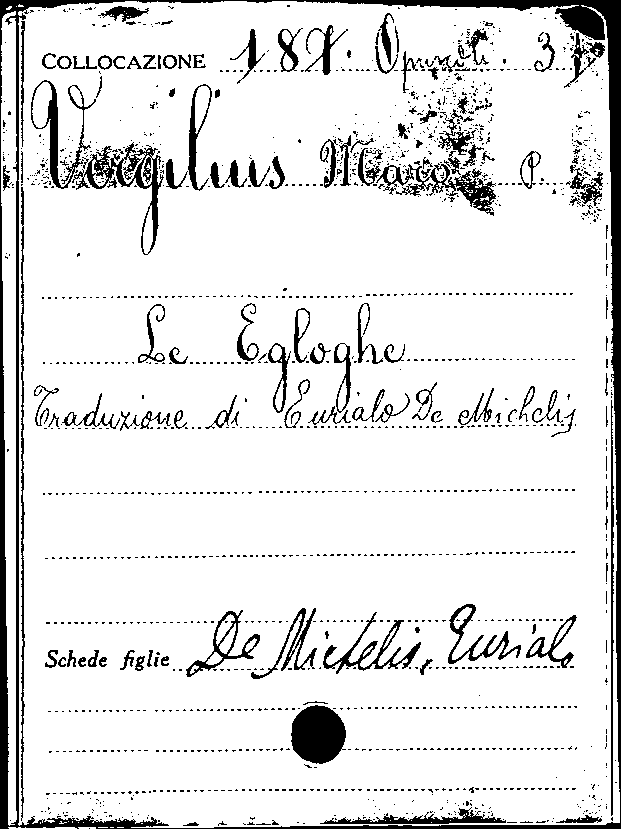 COLLOCAZIONE 187. Opuscoli. 31
Vergilius Maro P.
Le Egloghe
Traduzione di Eurialo De Michelis
Schede figlie De Michelis, Eurialo